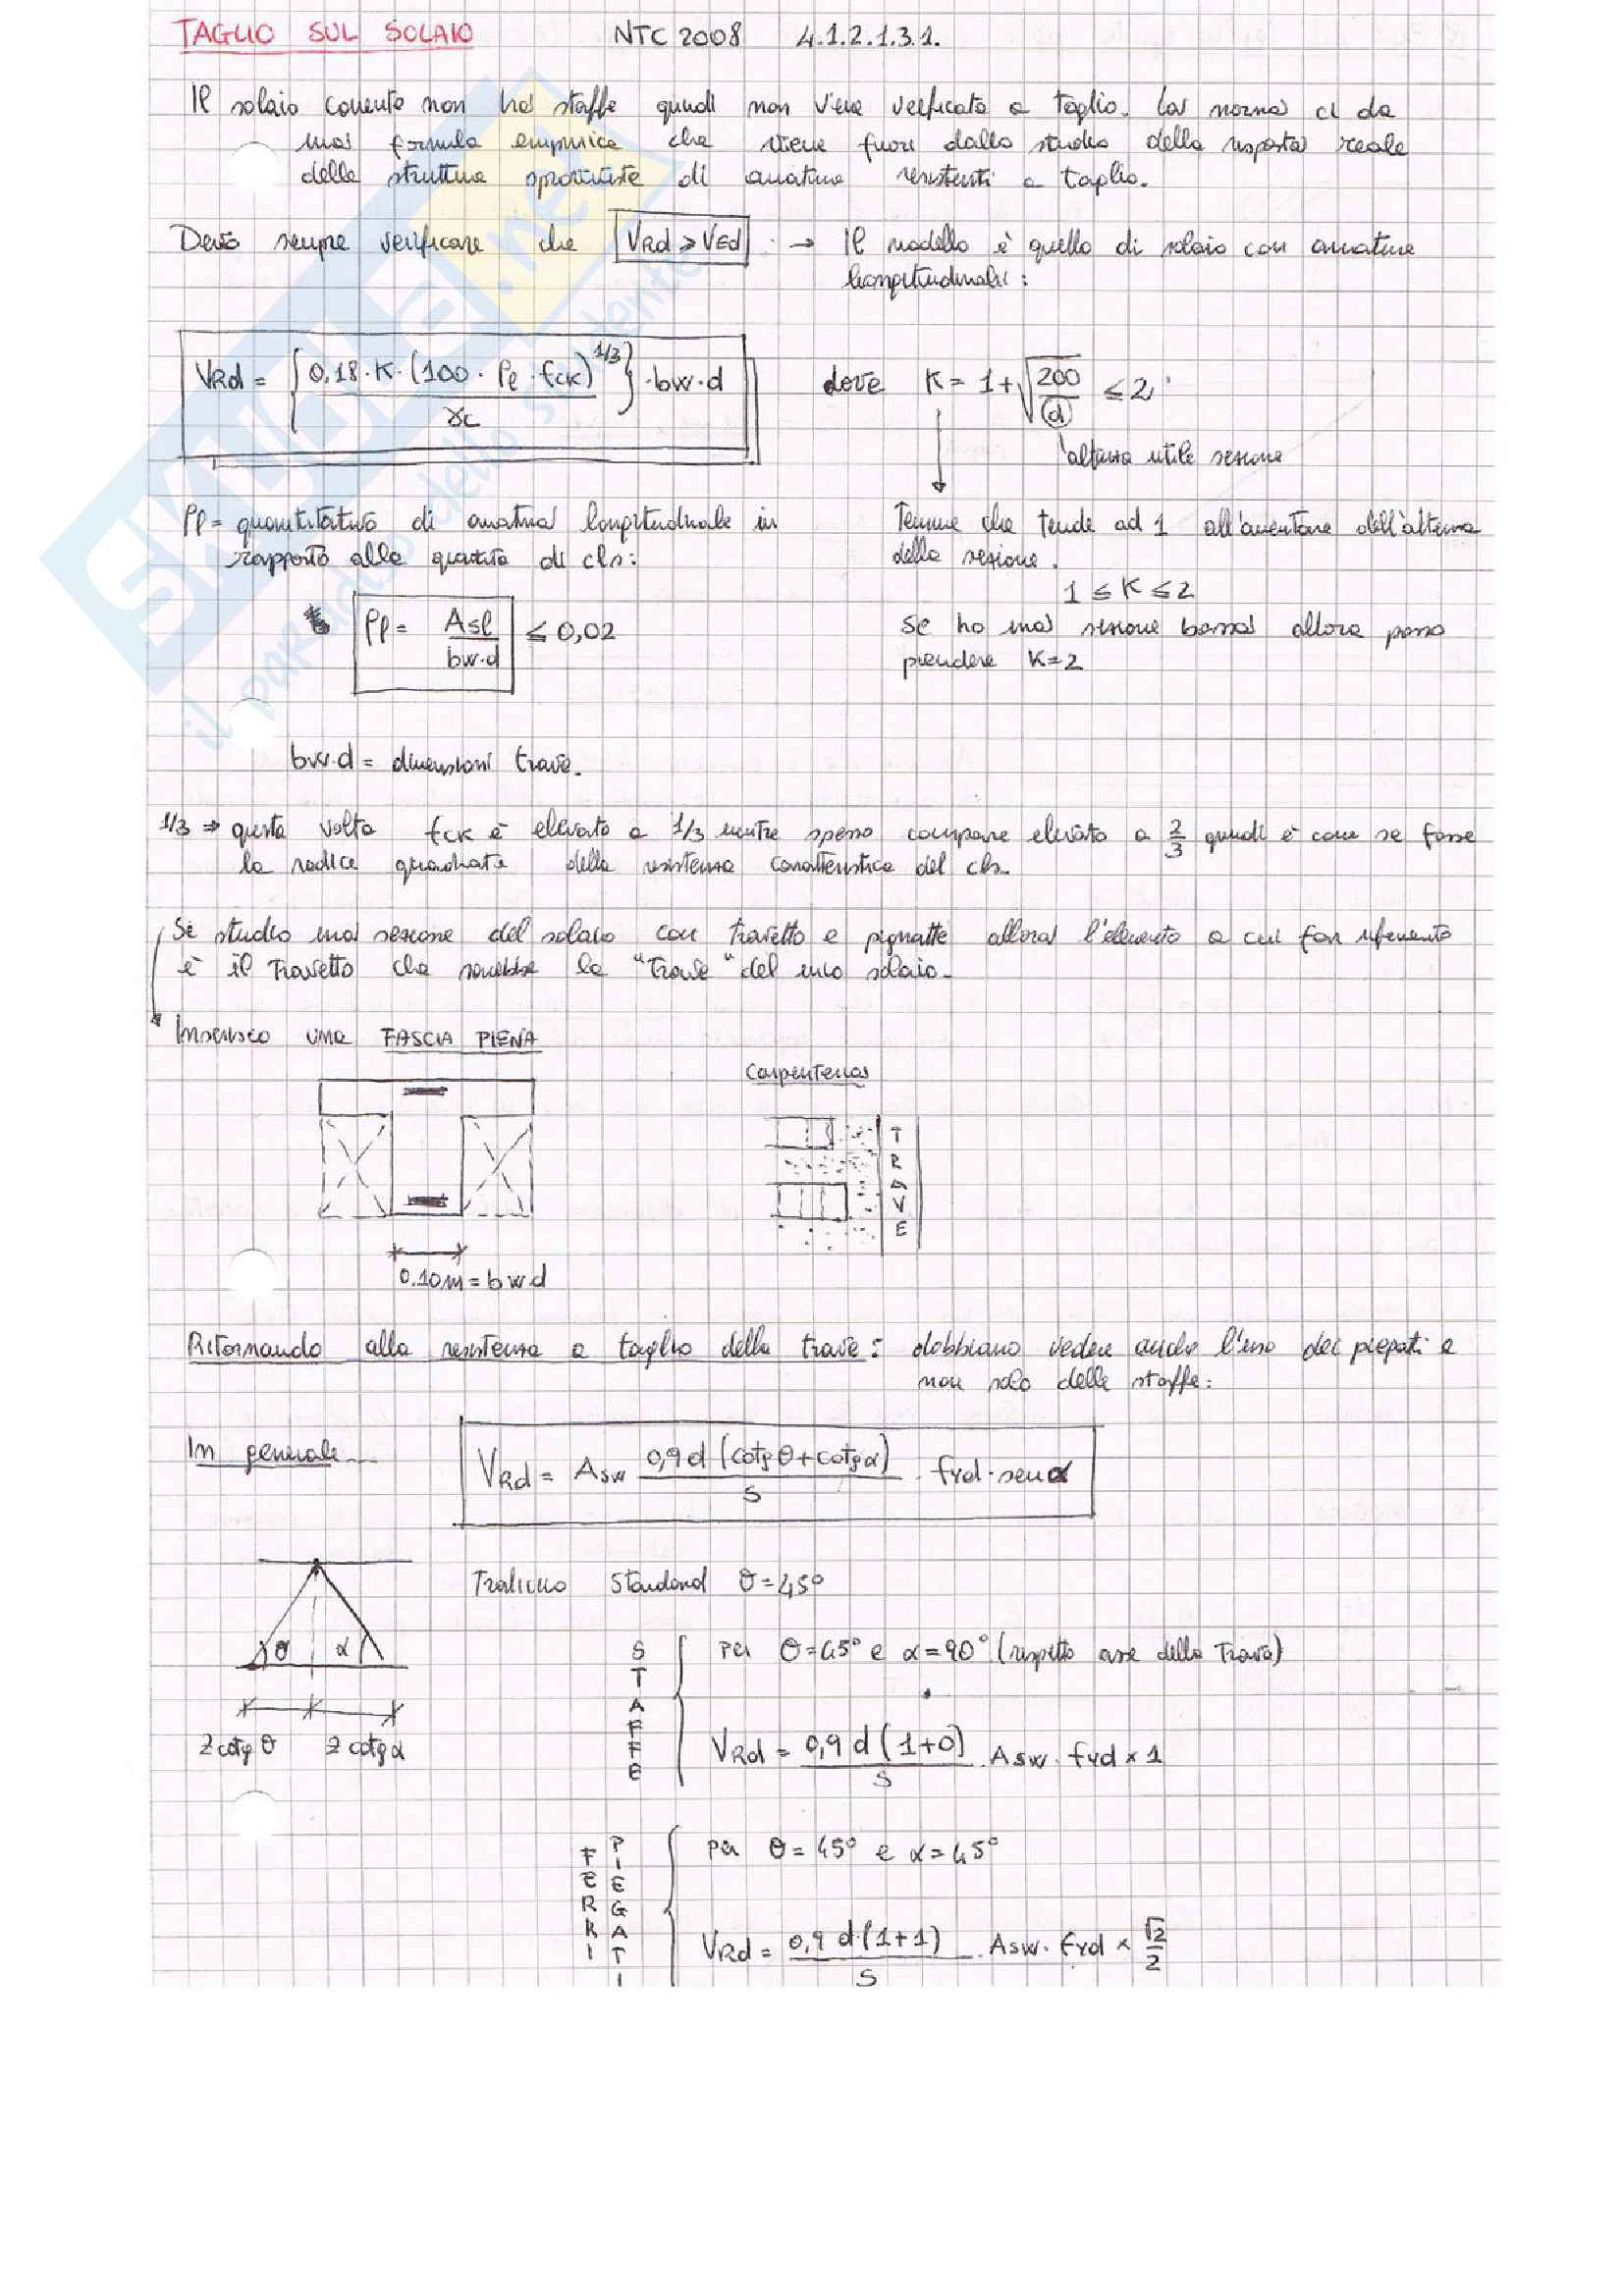 TAGLIO SUL SOLAIO NTC 2008 4.1.2.1.3.1.
Il solaio corrente non ha staffe quindi non viene verificato a taglio. La norma ci da
una formula empirica che viene fuori dallo studio della risposta reale
delle strutture sprovviste di armature resistenti a taglio.
Devo sempre verificare che VRd ≥ VEd → Il modello è quello di solaio con armature
longitudinali:
VRd = { 0,18·K·(100·ρl·fck)^1/3 / γc } ·bw·d dove K = 1+√(200/d) ≤ 2
altezza utile sezione
ρl = quantitativo di armatura longitudinale in
rapporto alla quantità di cls:
Termine che tende ad 1 all'aumentare dell'altezza
della sezione.
1 ≤ K ≤ 2
ρl = Asl / bw·d ≤ 0,02
Se ho una sezione bassa allora posso
prendere K=2
bw·d = dimensioni trave.
1/3 ⇒ questa volta fck è elevato a 1/3 mentre spesso compare elevato a 2/3 quindi è come se fosse
la radice quadrata della resistenza caratteristica del cls.
Se studio una sezione del solaio con travetto e pignatte allora l'elemento a cui far riferimento
è il travetto che sarebbe la "trave" del mio solaio.
Inserisco una FASCIA PIENA
Carpenteria
TRAVE
0.10m = bwd
Ritornando alla resistenza a taglio della trave: dobbiamo vedere anche l'uso dei piegati e
non solo delle staffe:
In generale
VRd = Asw 0,9 d (cotgθ+cotgα) / S · fyd·senα
Traliccio Standard θ=45°
θ α
z cotg θ z cotg α
STAFFE
per θ=45° e α=90° (rispetto asse della trave)
VRd = 0,9 d (1+0) / S · Asw· fyd × 1
FERRI PIEGATI
per θ=45° e α=45°
VRd = 0,9 d·(1+1) / S · Asw· fyd × √2/2
SKUOLA.net
il paradiso dello studente